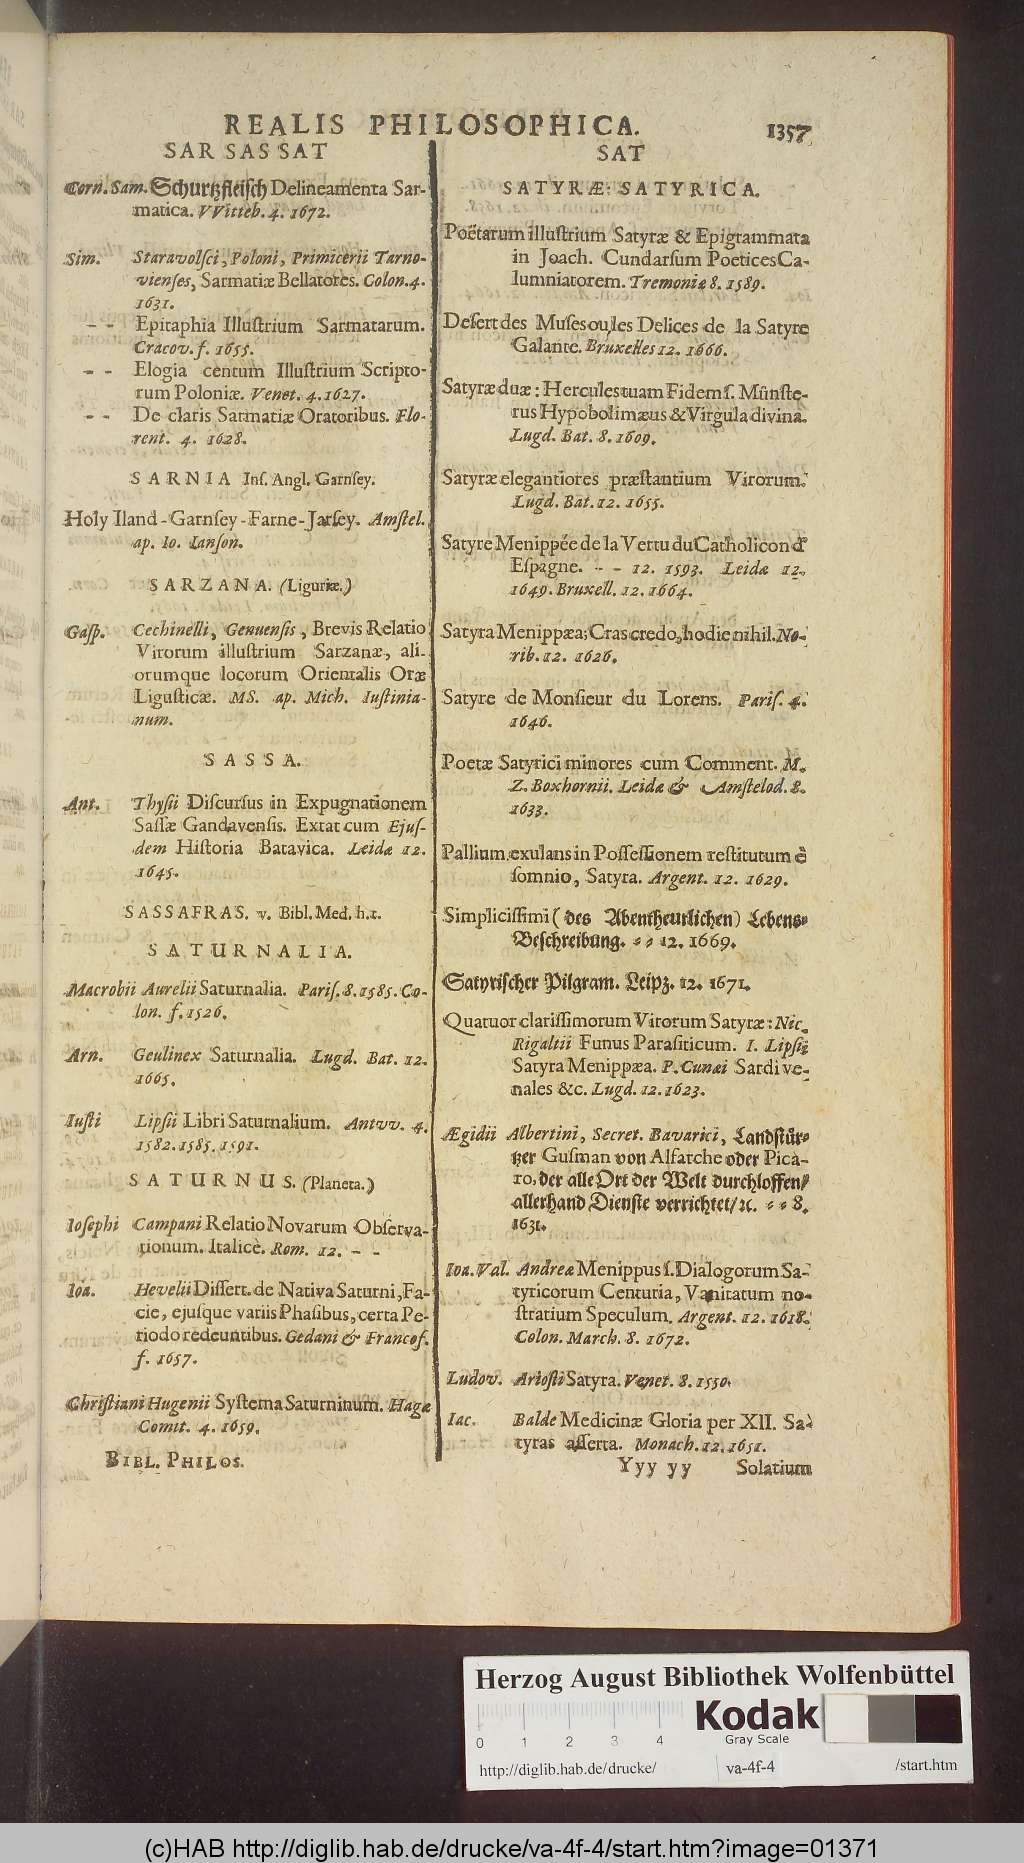 REALIS PHILOSOPHICA. 1357
SAR SAS SAT
Corn. Sam. Schurtzfleisch Delineamenta Sar-
matica. VVitteb. 4. 1672.
Sim. Staravolsci, Poloni, Primicerii Tarno-
viensis, Sarmatiæ Bellatores. Colon. 4.
1631.
-- Epitaphia Illustrium Sarmatarum.
Cracov. f. 1655.
-- Elogia centum Illustrium Scripto-
rum Poloniæ. Venet. 4. 1627.
-- De claris Sarmatiæ Oratoribus. Flo-
rent. 4. 1628.
SARNIA Ins. Angl. Garnsey.
Holy Iland-Garnsey-Farne-Jarsey. Amstel.
ap. Io. Ianson.
SARZANA. (Liguriæ.)
Gasp. Cechinelli, Genuensis, Brevis Relatio
Virorum illustrium Sarzanæ, ali-
orumque locorum Orientalis Oræ
Ligusticæ. MS. ap. Mich. Iustinia-
num.
SASSA.
Ant. Thysii Discursus in Expugnationem
Sassæ Gandavensis. Extat cum Ejus-
dem Historia Batavica. Leidæ 12.
1645.
SASSAFRAS. v. Bibl. Med. h. t.
SATURNALIA.
Macrobii Aurelii Saturnalia. Paris. 8. 1585. Co-
lon. f. 1526.
Arn. Geulinex Saturnalia. Lugd. Bat. 12.
1665.
Iusti Lipsii Libri Saturnalium. Antvv. 4.
1582. 1585. 1591.
SATURNUS. (Planeta.)
Iosephi Campani Relatio Novarum Observa-
tionum. Italicè. Rom. 12. --
Ioa. Hevelii Dissert. de Nativa Saturni, Fa-
cie, ejusque variis Phasibus, certa Pe-
riodo redeuntibus. Gedani & Francof.
f. 1657.
Christiani Hugenii Systema Saturninum. Hagæ
Comit. 4. 1659.
BIBL. PHILOS.
SAT
SATYRÆ: SATYRICA.
Poëtarum illustrium Satyræ & Epigrammata
in Joach. Cundarsum Poetices Ca-
lumniatorem. Tremoniæ 8. 1589.
Desert des Muses ou les Delices de la Satyre
Galante. Bruxelles 12. 1666.
Satyræ duæ: Hercules tuam Fidem s. Münste-
rus Hypobolimæus & Virgula divina.
Lugd. Bat. 8. 1609.
Satyræ elegantiores præstantium Virorum.
Lugd. Bat. 12. 1655.
Satyre Menippée de la Vertu du Catholicon d'
Espagne. -- 12. 1593. Leidæ 12.
1649. Bruxell. 12. 1664.
Satyra Menippæa; Cras credo, hodie nihil. No-
rib. 12. 1626.
Satyre de Monsieur du Lorens. Paris. 4.
1646.
Poetæ Satyrici minores cum Comment. M.
Z. Boxhornii. Leidæ & Amstelod. 8.
1633.
Pallium exulans in Possessionem restitutum è
somnio, Satyra. Argent. 12. 1629.
Simplicissimi (des Abentheurlichen) Lebens-
Beschreibung. -- 12. 1669.
Satyrischer Pilgram. Leipz. 12. 1671.
Quatuor clarissimorum Virorum Satyræ: Nic.
Rigaltii Funus Parasiticum. I. Lipsii
Satyra Menippæa. P. Cunæi Sardi ve-
nales &c. Lugd. 12. 1623.
Ægidii Albertini, Secret. Bavarici, Landstür-
tzer Gusman von Alfarche oder Pica-
ro, der alle Ort der Welt durchloffen/
allerhand Dienste verrichtet/ ꝛc. -- 8.
1631.
Ioa. Val. Andreæ Menippus s. Dialogorum Sa-
tyricorum Centuria, Vanitatum no-
stratium Speculum. Argent. 12. 1618.
Colon. March. 8. 1672.
Ludov. Ariosti Satyra. Venet. 8. 1550.
Iac. Balde Medicinæ Gloria per XII. Sa-
tyras asserta. Monach. 12. 1651.
Yyy yy Solatium
Herzog August Bibliothek Wolfenbüttel
0 1 2 3 4
Kodak
Gray Scale
http://diglib.hab.de/drucke/ va-4f-4 /start.htm
(c)HAB http://diglib.hab.de/drucke/va-4f-4/start.htm?image=01371